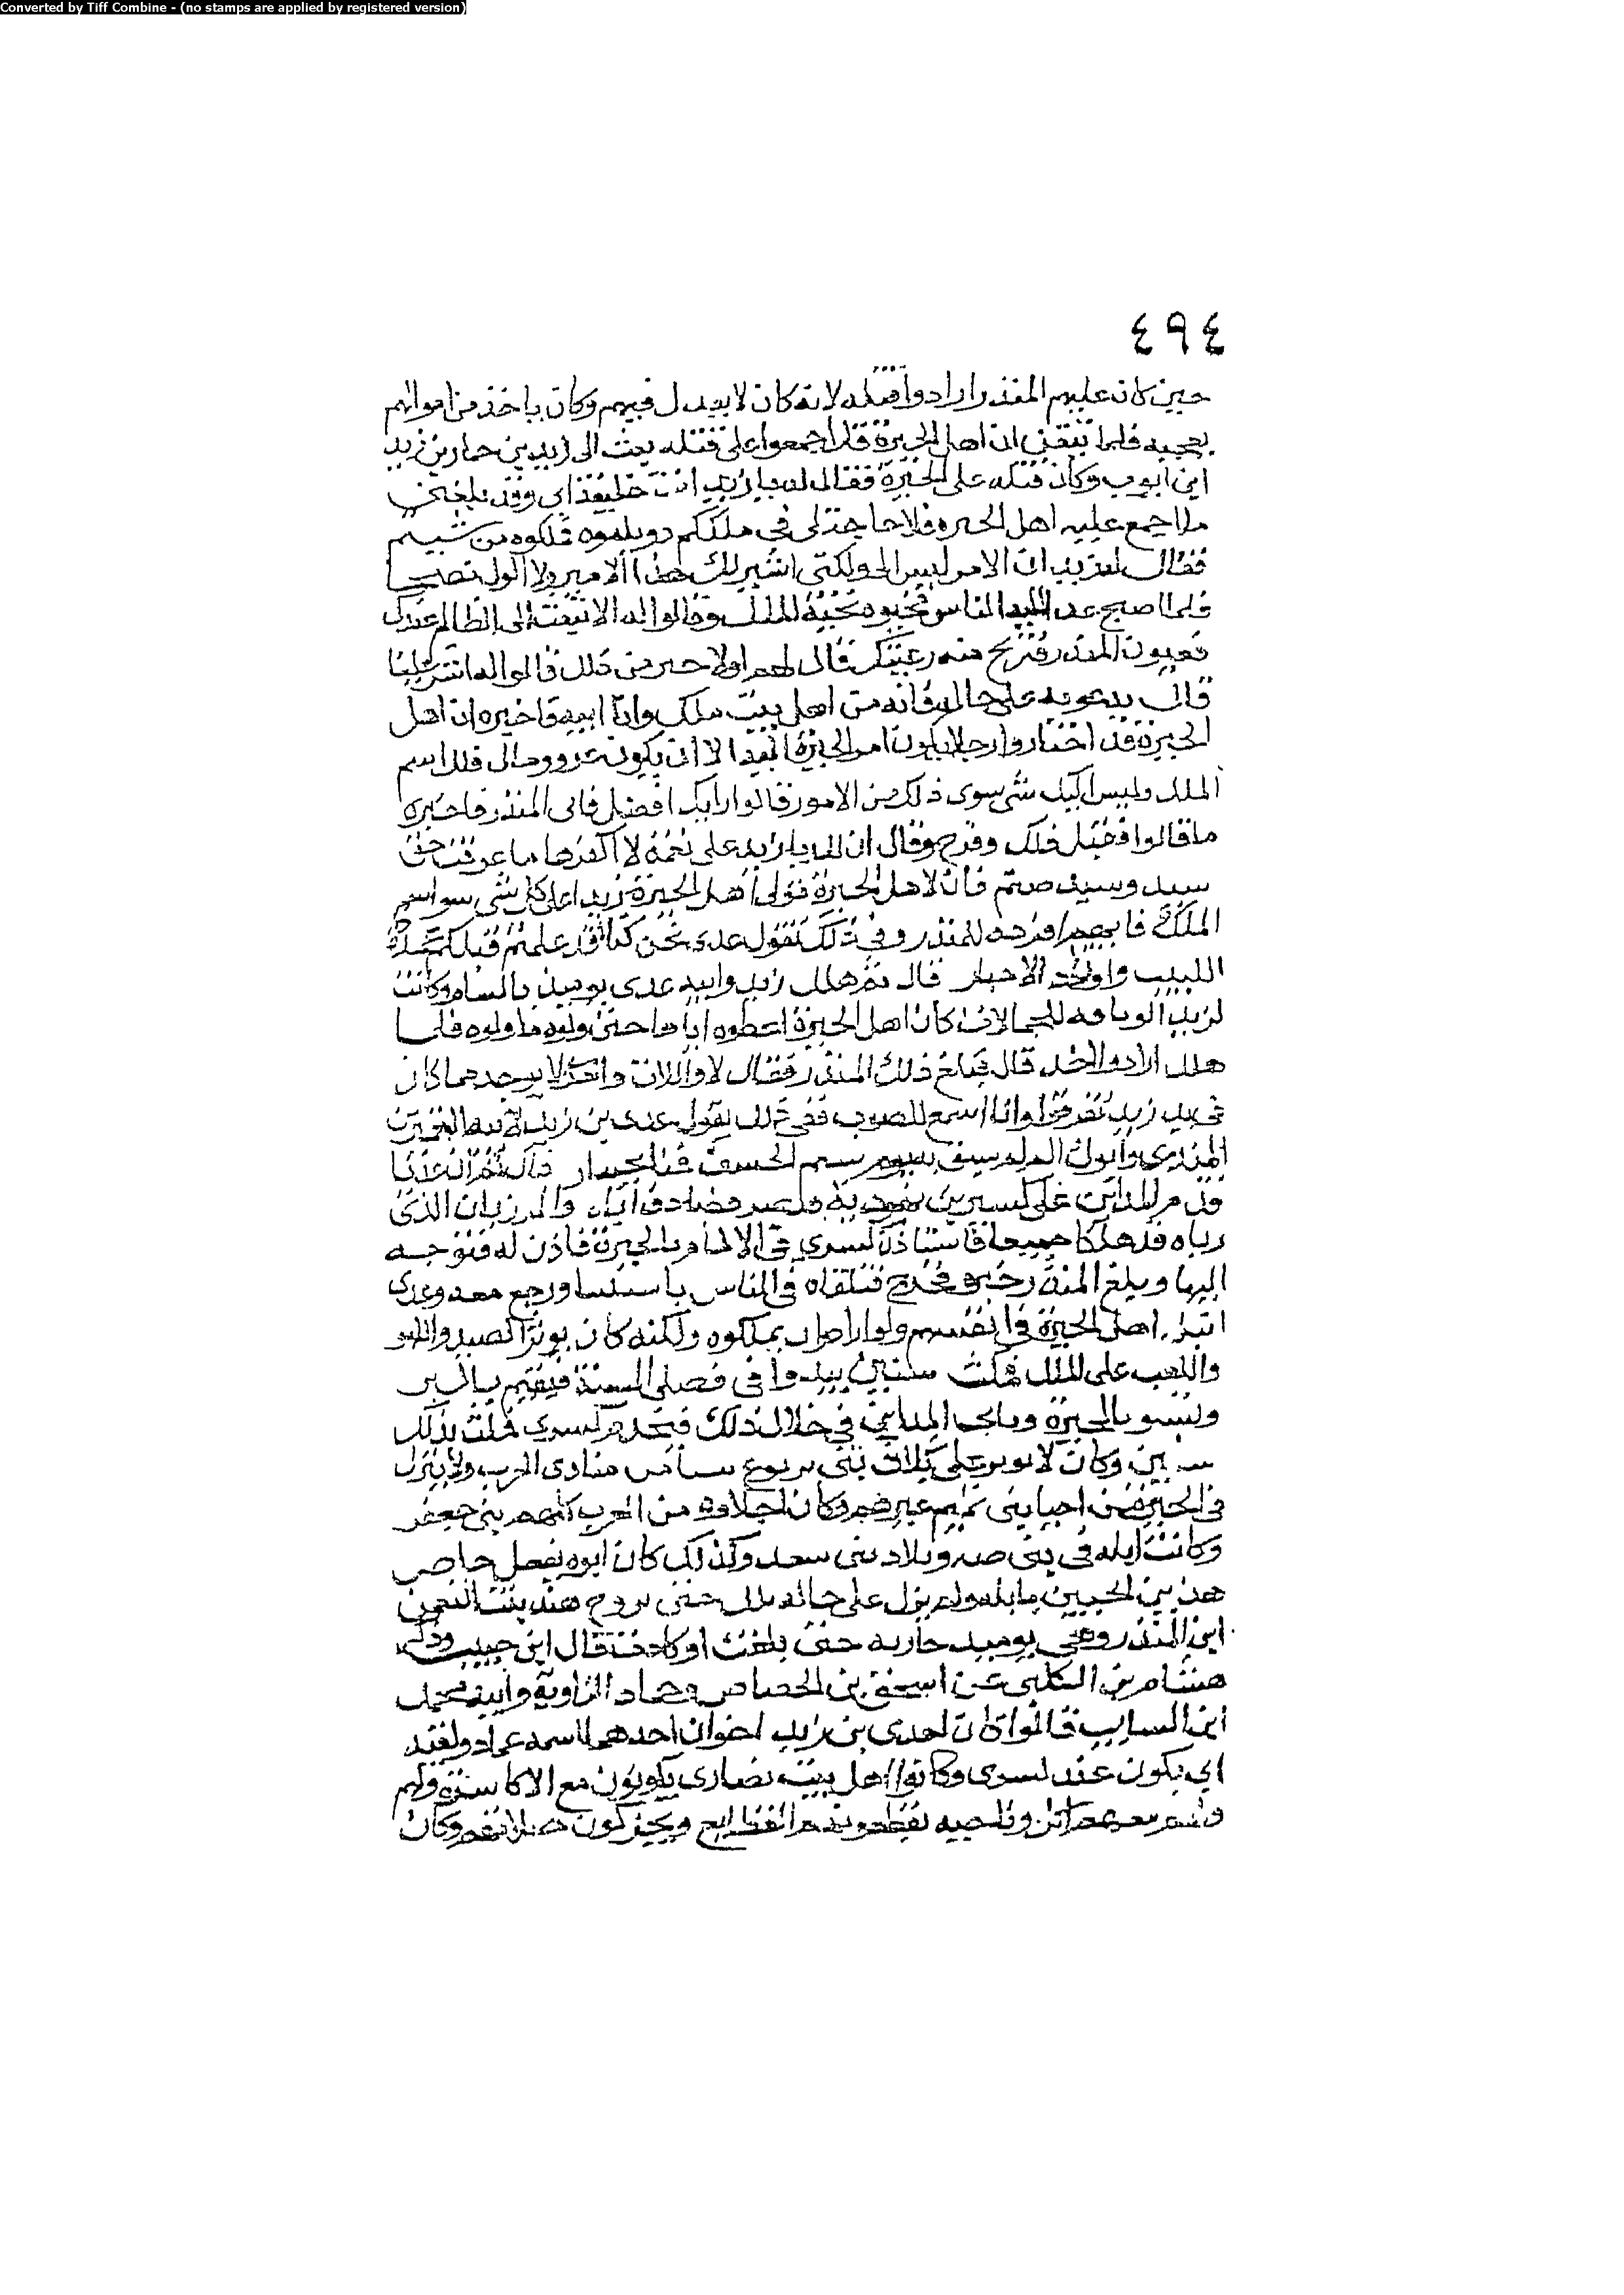 Converted by Tiff Combine - (no stamps are applied by registered version)
٤٩٤
حين كان عليهم المنذر ارادوا قتله لانه كان لا يعدل فيهم وكان ياخذ من اموالهم
يعجبه فلما تيقن ان اهل الحيرة قد اجمعوا على قتله بعث الى زيد بن حمار بن زيد
ابن ايوب وكان قتله على الحيرة فقال له يا زيد انت خليفة ابي وقد بلغني
ما اجمع عليه اهل الحيره فلا حاجة لى فى ملككم دونكموه فملكوه من شيتم
فقال له زيد ان الامر ليس الى ولكنى اشير لك هذا الامير ولا الوك نصحا
فلما اصبح غدا اليه الناس فحيوه تحية الملك وقالوا له الا تبعث الى الظالم عندك
تعيبون المنذر فتريح منه رعيتك قال لهم اولا خير من ذلك قالوا له اشر علينا
قال يدعونه على حاله فانه من اهل بيت ملك وانا اتيه فاخبره ان اهل
الحيرة قد اختاروا رجلا يكون امر الحيرة اليه الا ان يكون غزو وحـالى فلك اسم
الملك وليس اليك شى سوى ذلك من الامور قالوا رايك افضل فاتى المنذر فاخبره
ما قالوا فقبل ذلك وفرح وقال ان لك يا زيد على نعمة لا اكفرها ما عرفت حق
سبد وسبد صنم كان لاهل الحيرة فولى اهل الحيرة زيدا على كل شى سوا اسم
الملك فا للمنذر وفى ذلك يقول عدى نحن كنا قد علمتم قبلكم عمد
البيت واوتاد الاصار قال ثم هلك زيد وابنه عدى يوميذ بالشام وكانت
لزيد الف ناقه للحمالات كان اهل الحيرة اعطوه اياها حتى ولوه ما ولوه فلما
هلك ارادوا اخذ قال فبلغ ذلك المنذر فقال لا واللات والعزى لا يوخذ مما كان
فى يد زيد تفروق وانا اسمع الصوت ففى ذلك يقول عدى بن زيد لابنه النعمن
المنذرى وابوك المرء يوم سيم الخسف قال ثم ان عديا
قدم المدائن على كسرى بن بهدية قيصر فصادف اباه والمرزبان الذى
رباه قد هلكا جميعا فاستاذن كسرى فى الالمام بالحيرة فاذن له فتوجه
اليها وبلغ المنذر خبره فخرج فتلقاه فى الناس ورجع معه وعدى
انبل اهل الحيرة فى انفسهم ولو اراد ان يملكوه ولكنه كان يوثر الصيد واللهو
واللعب على الملك فمكث سنين يبدوا فى فصلى السنة فيقيم بالبر
ويشتو بالحيرة وياتى المداين فى خلال ذلك فيخدم كسرى فمكث بذلك
سنين وكان لا يوثر على بلاد بنى يربوع من مبادى العرب ولا ينزل
فى الحيين من احيا بنى تميم غيرهم وكان اخلاوه من العرب كلهم بنى جعفر
وكانت ابله فى بنى ضبه وبلاد بنى سعد وكذلك كان ابوه يفعل
هذين الحيين بابله ولم يزل على حاله تلك حتى تزوج هند بنت النعمن
ابن المنذر وهى يوميذ جاريه حتى بلغت او كادت قال ابن حبيب وذكر
هشام بن الكلبى عن اسحق بن الجصاص وحماد الراوية وابيه محمد
ابن السايب قالوا كان لعدى بن زيد اخوان احدهما اسمه عمار ولقبه
ابي يكون عند كسرى وكانوا اهل بيت نصارى يكونون مع الاكاسره ولهم
معهم اكل وناحيه يقطعونهم القطايع ويجزلون صلاتهم وكان